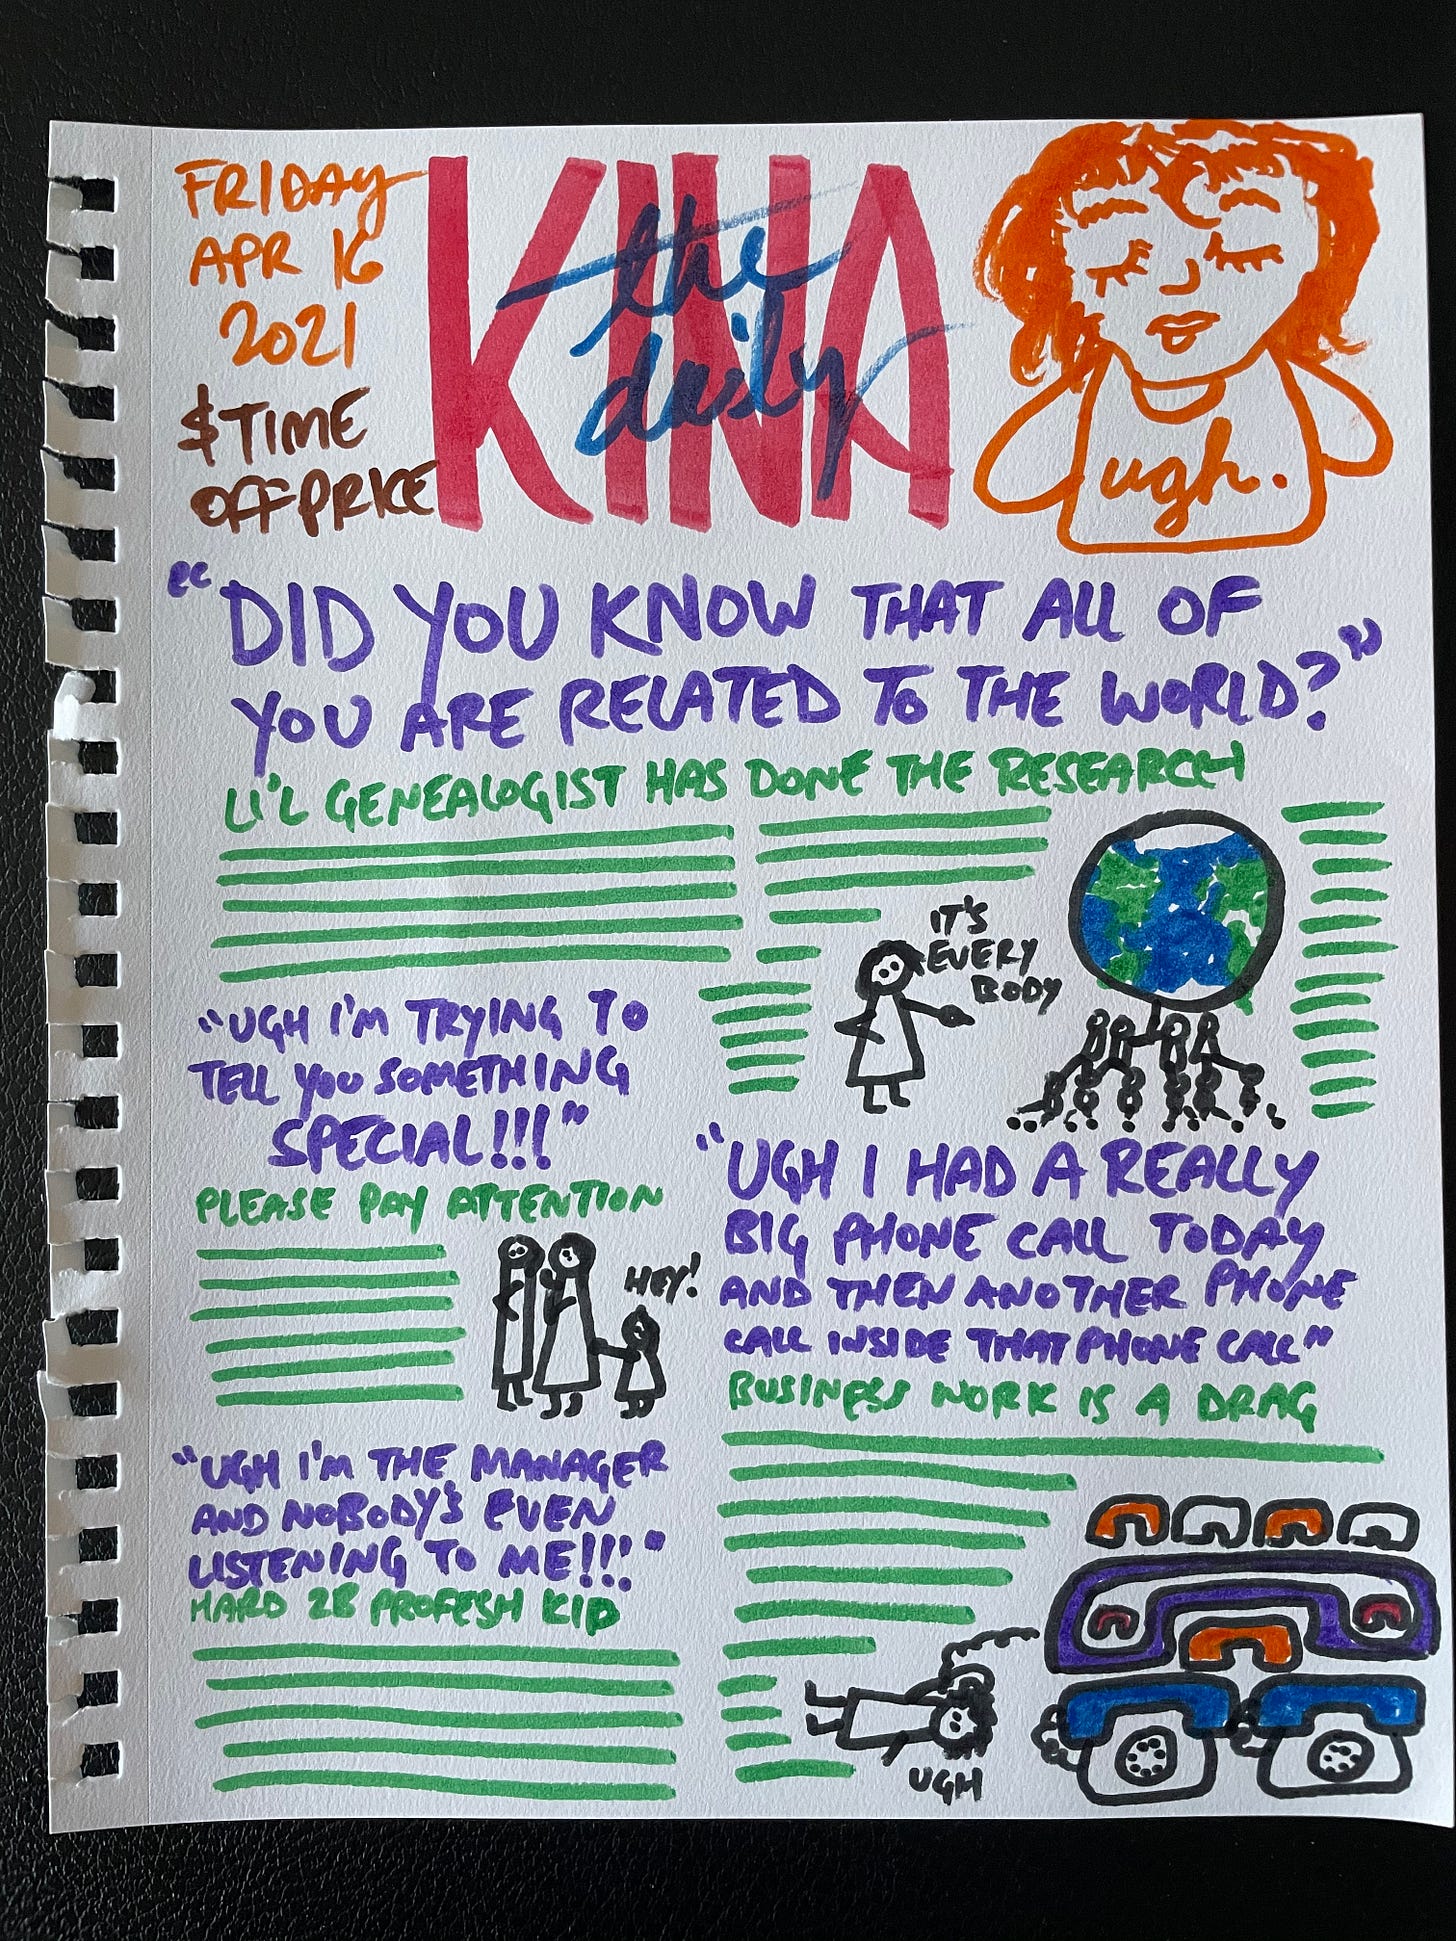 FRIDAY
APR 16
2021
$TIME
OFF PRICE
the
daily
KINA
ugh.
"DID YOU KNOW THAT ALL OF
YOU ARE RELATED TO THE WORLD?"
LI'L GENEALOGIST HAS DONE THE RESEARCH
IT'S
EVERY
BODY
"UGH I'M TRYING TO
TELL YOU SOMETHING
SPECIAL!!!"
PLEASE PAY ATTENTION
HEY!
"UGH I'M THE MANAGER
AND NOBODY'S EVEN
LISTENING TO ME!!!"
HARD 2B PROFESH KID
"UGH I HAD A REALLY
BIG PHONE CALL TODAY
AND THEN ANOTHER PHONE
CALL INSIDE THAT PHONE CALL"
BUSINESS WORK IS A DRAG
UGH